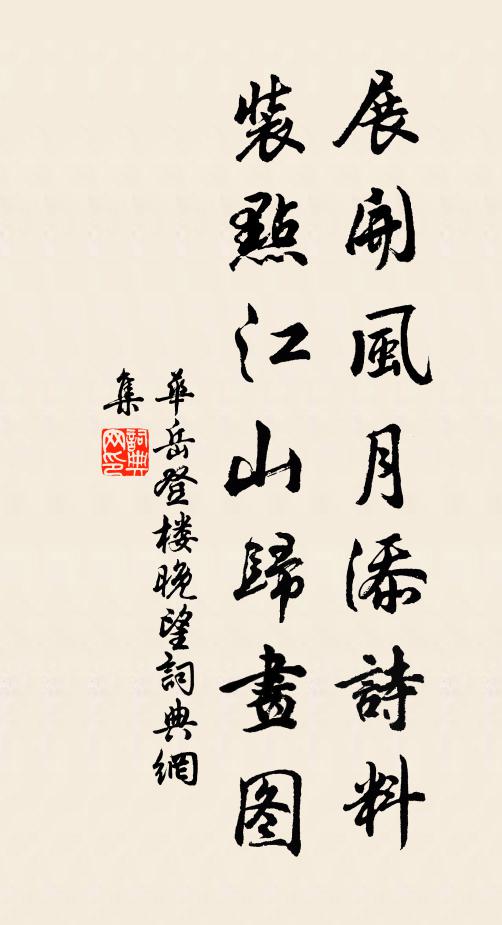 展開風月添詩料
裝點江山歸畫图
華岳登楼晚望詞典網
集
詞典网印